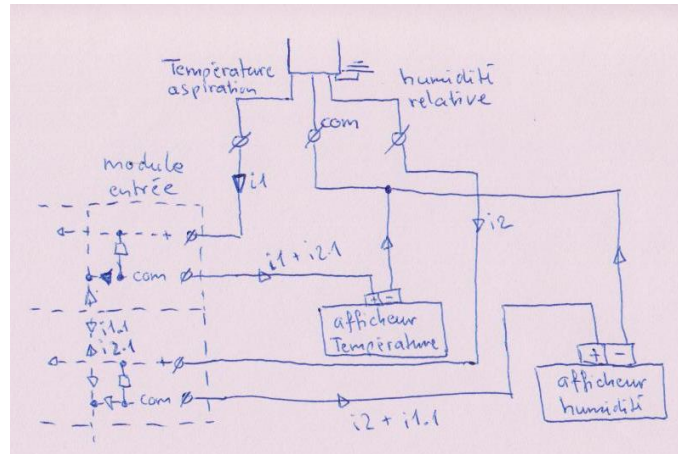 Température
aspiration
humidité
relative
com
module
entrée
i1
i2
+
i1 + i2.1
com
+ -
afficheur
Température
i1.1
i2.1
+
+ -
com
afficheur
humidité
i2 + i1.1